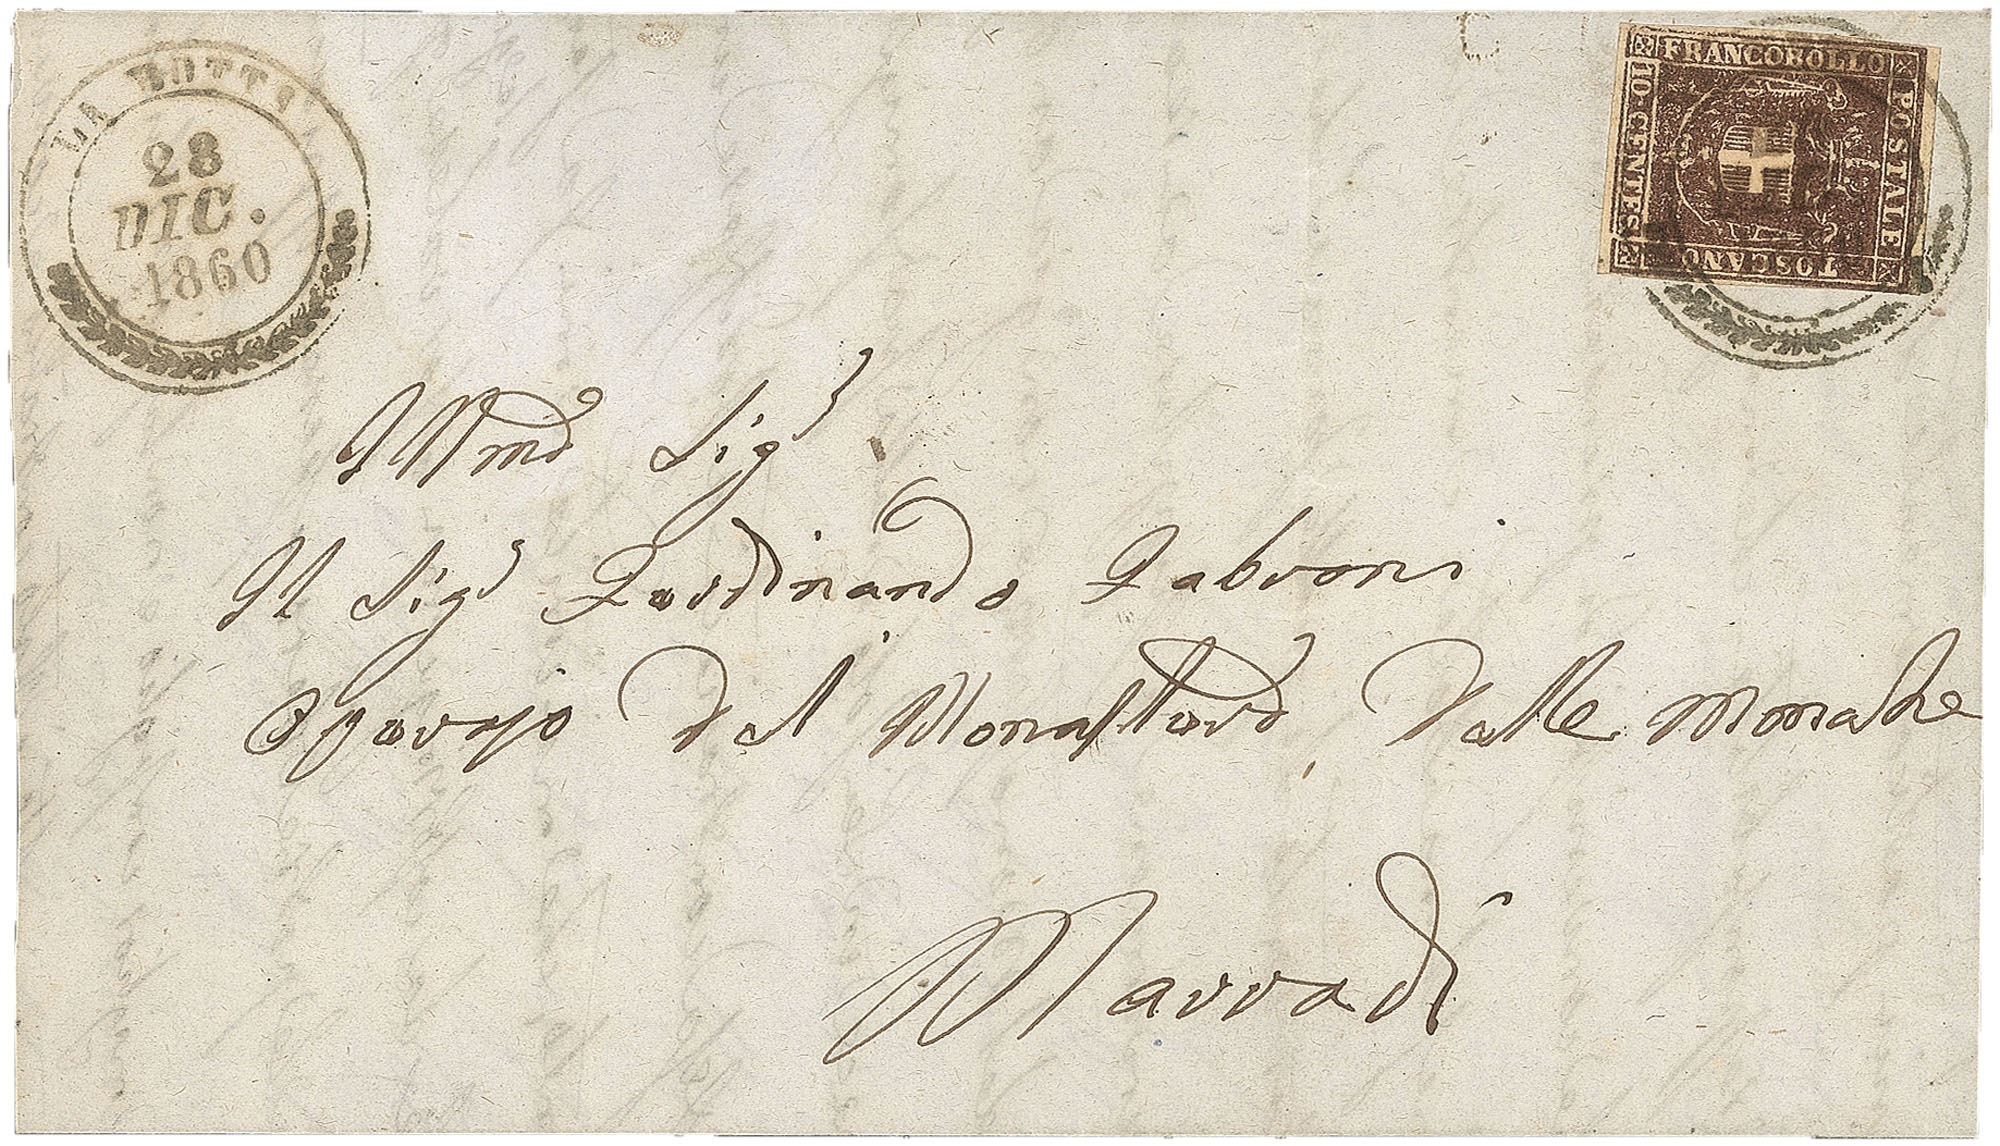 LA ROTTA
28
DIC.
1860
FRANCOBOLLO
POSTALE
TOSCANO
10 CENTES
Illmo Sigr
Il Sigr Ferdinando Fabroni
Operajo del Monastero delle Monache
Marradi